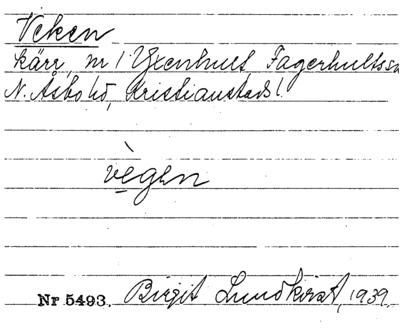 Veken
kärr, nr 1 Yxenhult, Fagerhults
N. Åsbo hd, Kristianstads l.
vègen
Nr 5493. Birgit Lundkvist, 1939.